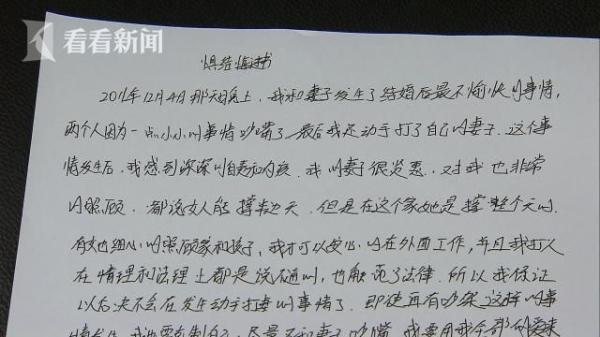 看看新闻
具结悔过书
2011年12月4日那天晚上，我和妻子发生了结婚后最不愉快的事情，
两个人因为一点小小的事情吵嘴了，最后我还动手打了自己的妻子。这个事
情发生后，我感到深深的自责和内疚。我的妻子很贤惠，对我也非常
的照顾，都说女人能撑半边天，但是在这个家她是撑整个天的，
有她细心的照顾家和孩子，我才可以安心的在外面工作，并且我打人
在情理和法理上都是说不通的，也触犯了法律，所以我保证
以后决不会在发生动手打妻的事情了，即使再有吵架这样的事
情发生，我也要克制自己，尽量不和妻子吵嘴，我要用我全部的爱来